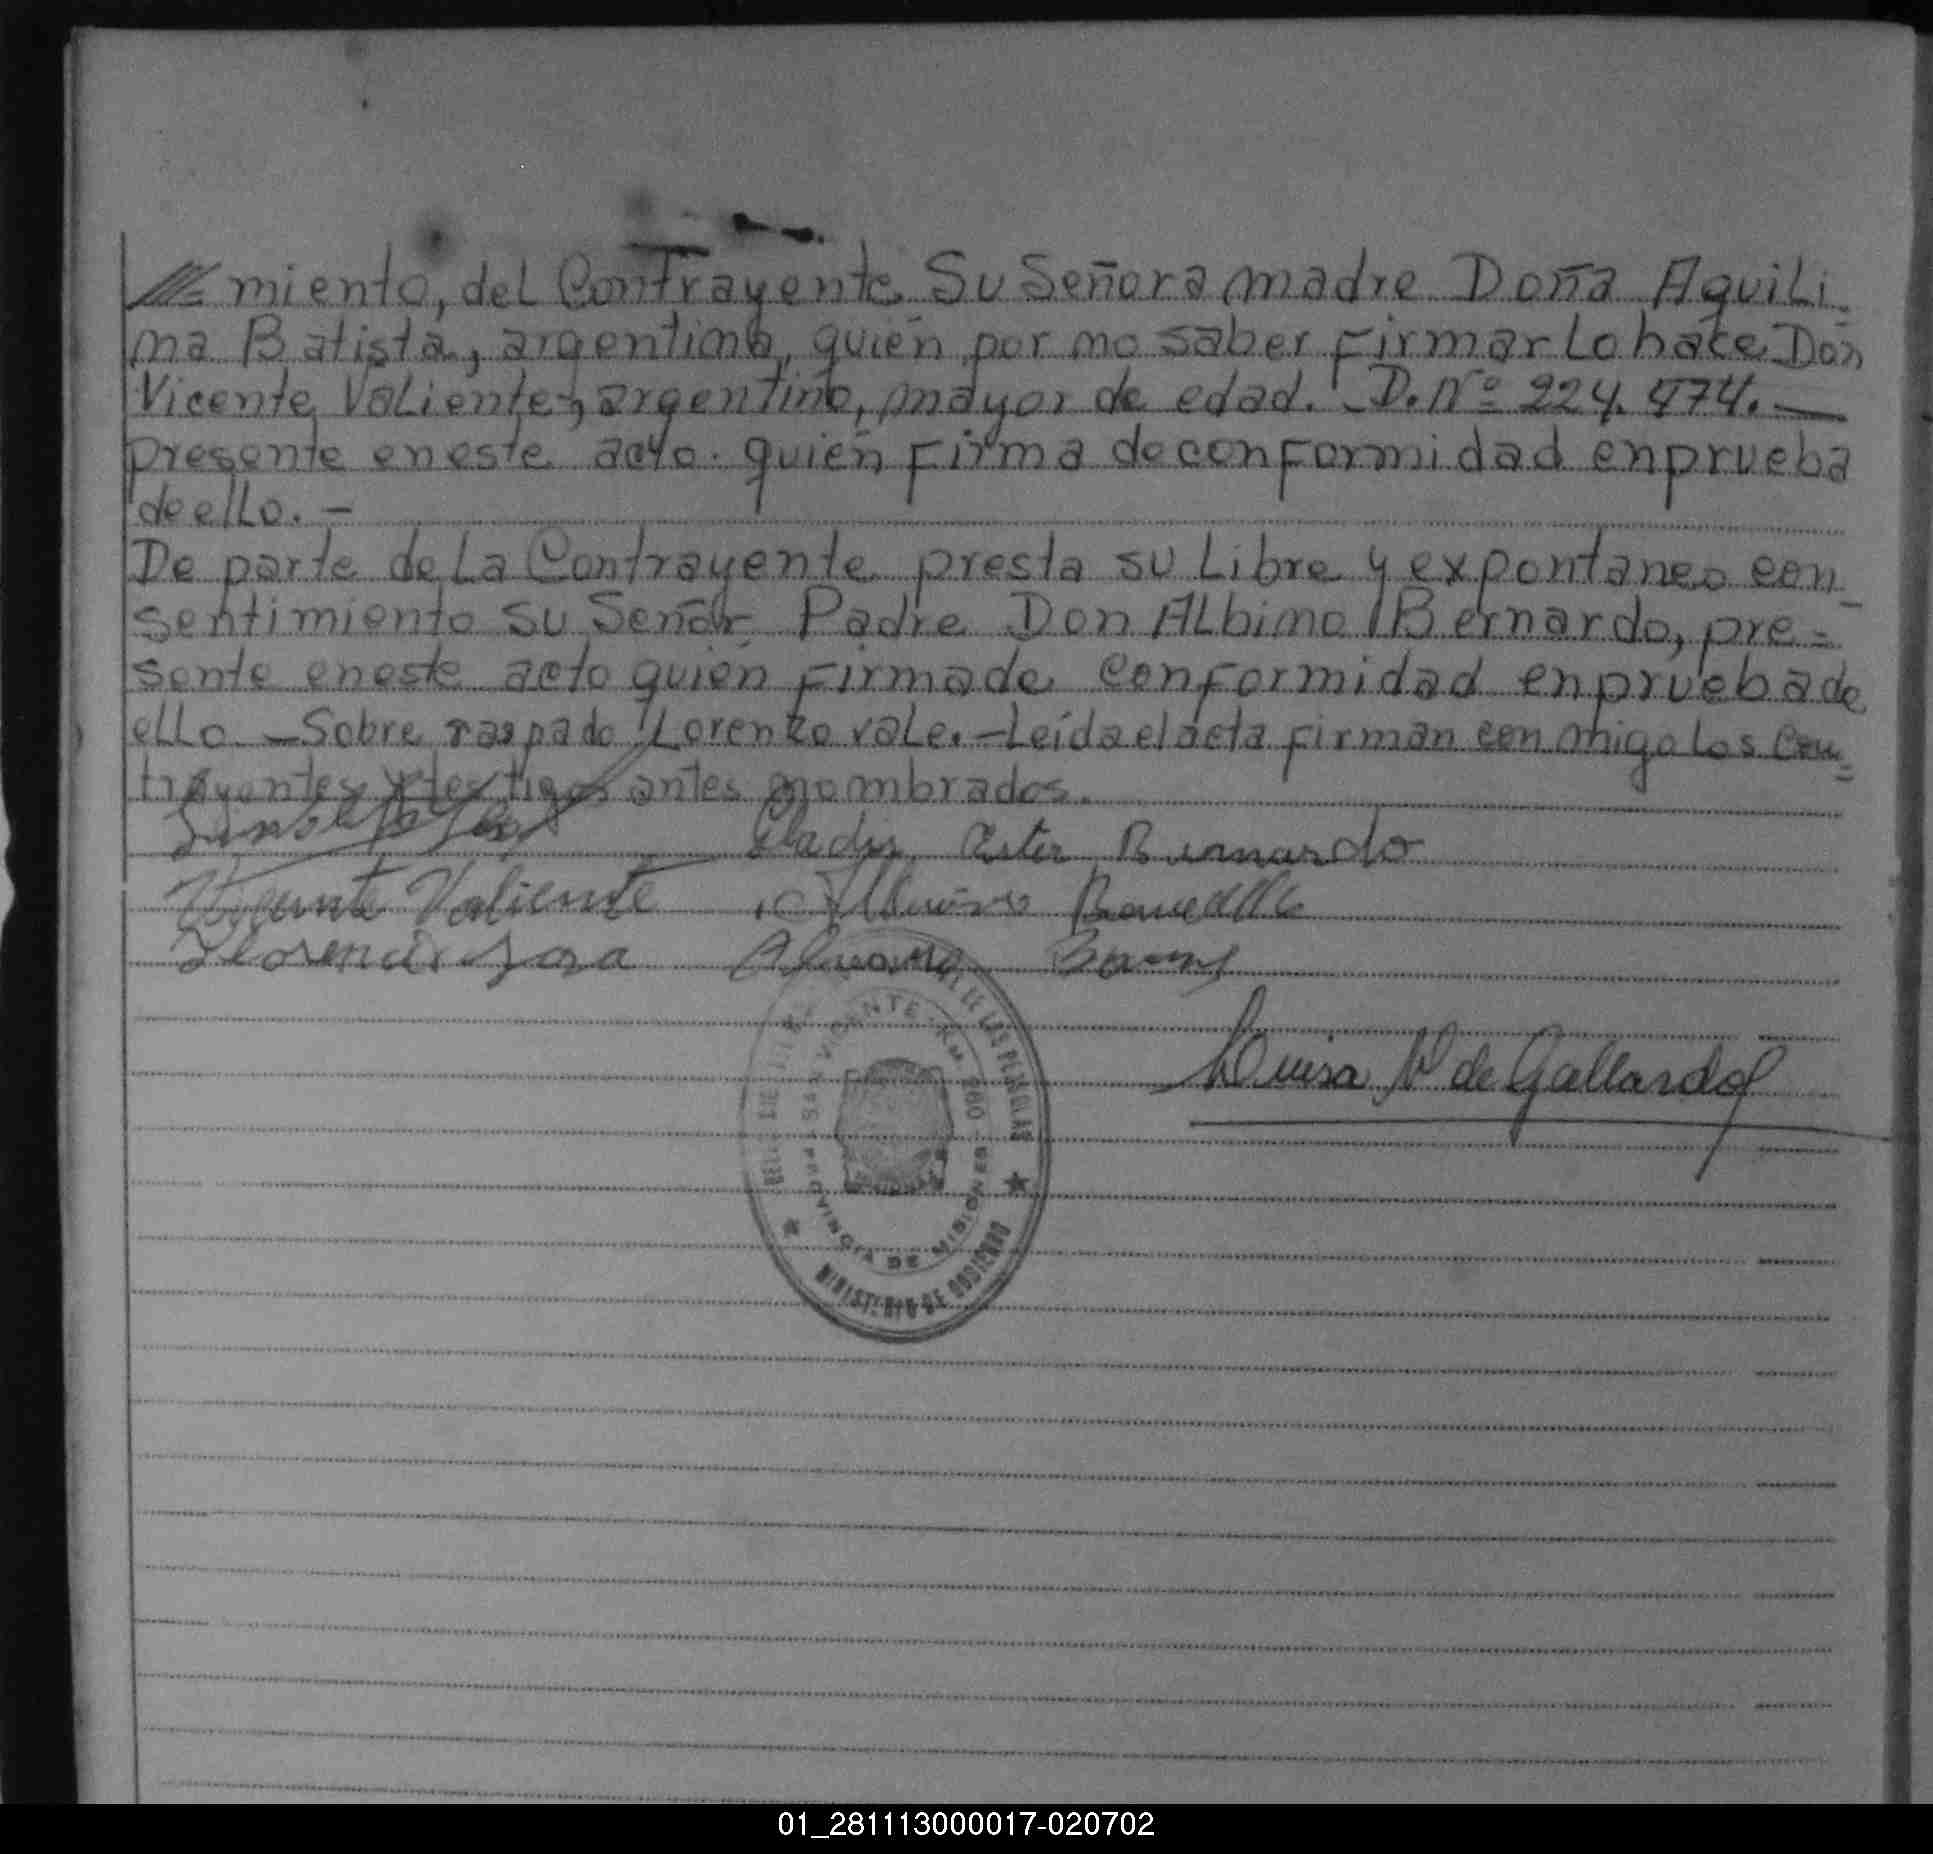 miento, del Contrayente Su Señora madre Doña Aquili-
na Batista, argentina, quién por no saber firmar lo hace Don
Vicente Valiente, argentino, mayor de edad. D. Nº 224.474.—
presente en este acto. quién firma de conformidad en prueba
de ello. -
De parte de La Contrayente presta su Libre y expontaneo con-
sentimiento su Señor Padre Don Albino Bernardo, pre=
sente en este acto quién firma de conformidad en prueba de
ello. - Sobre raspado Lorenzo vale. - Leída el acta firman con migo los Con=
trayentes y testigos antes nombrados.
Gladys Ester Bernardo
Vicente Valiente Albino Bernardo
Florencio Sosa
Luisa V de Gallardo
DE LAS PERSONAS
SAN VICENTE - KM. 260
PROVINCIA DE MISIONES
MINISTERIO DE GOBIERNO
01_281113000017-020702